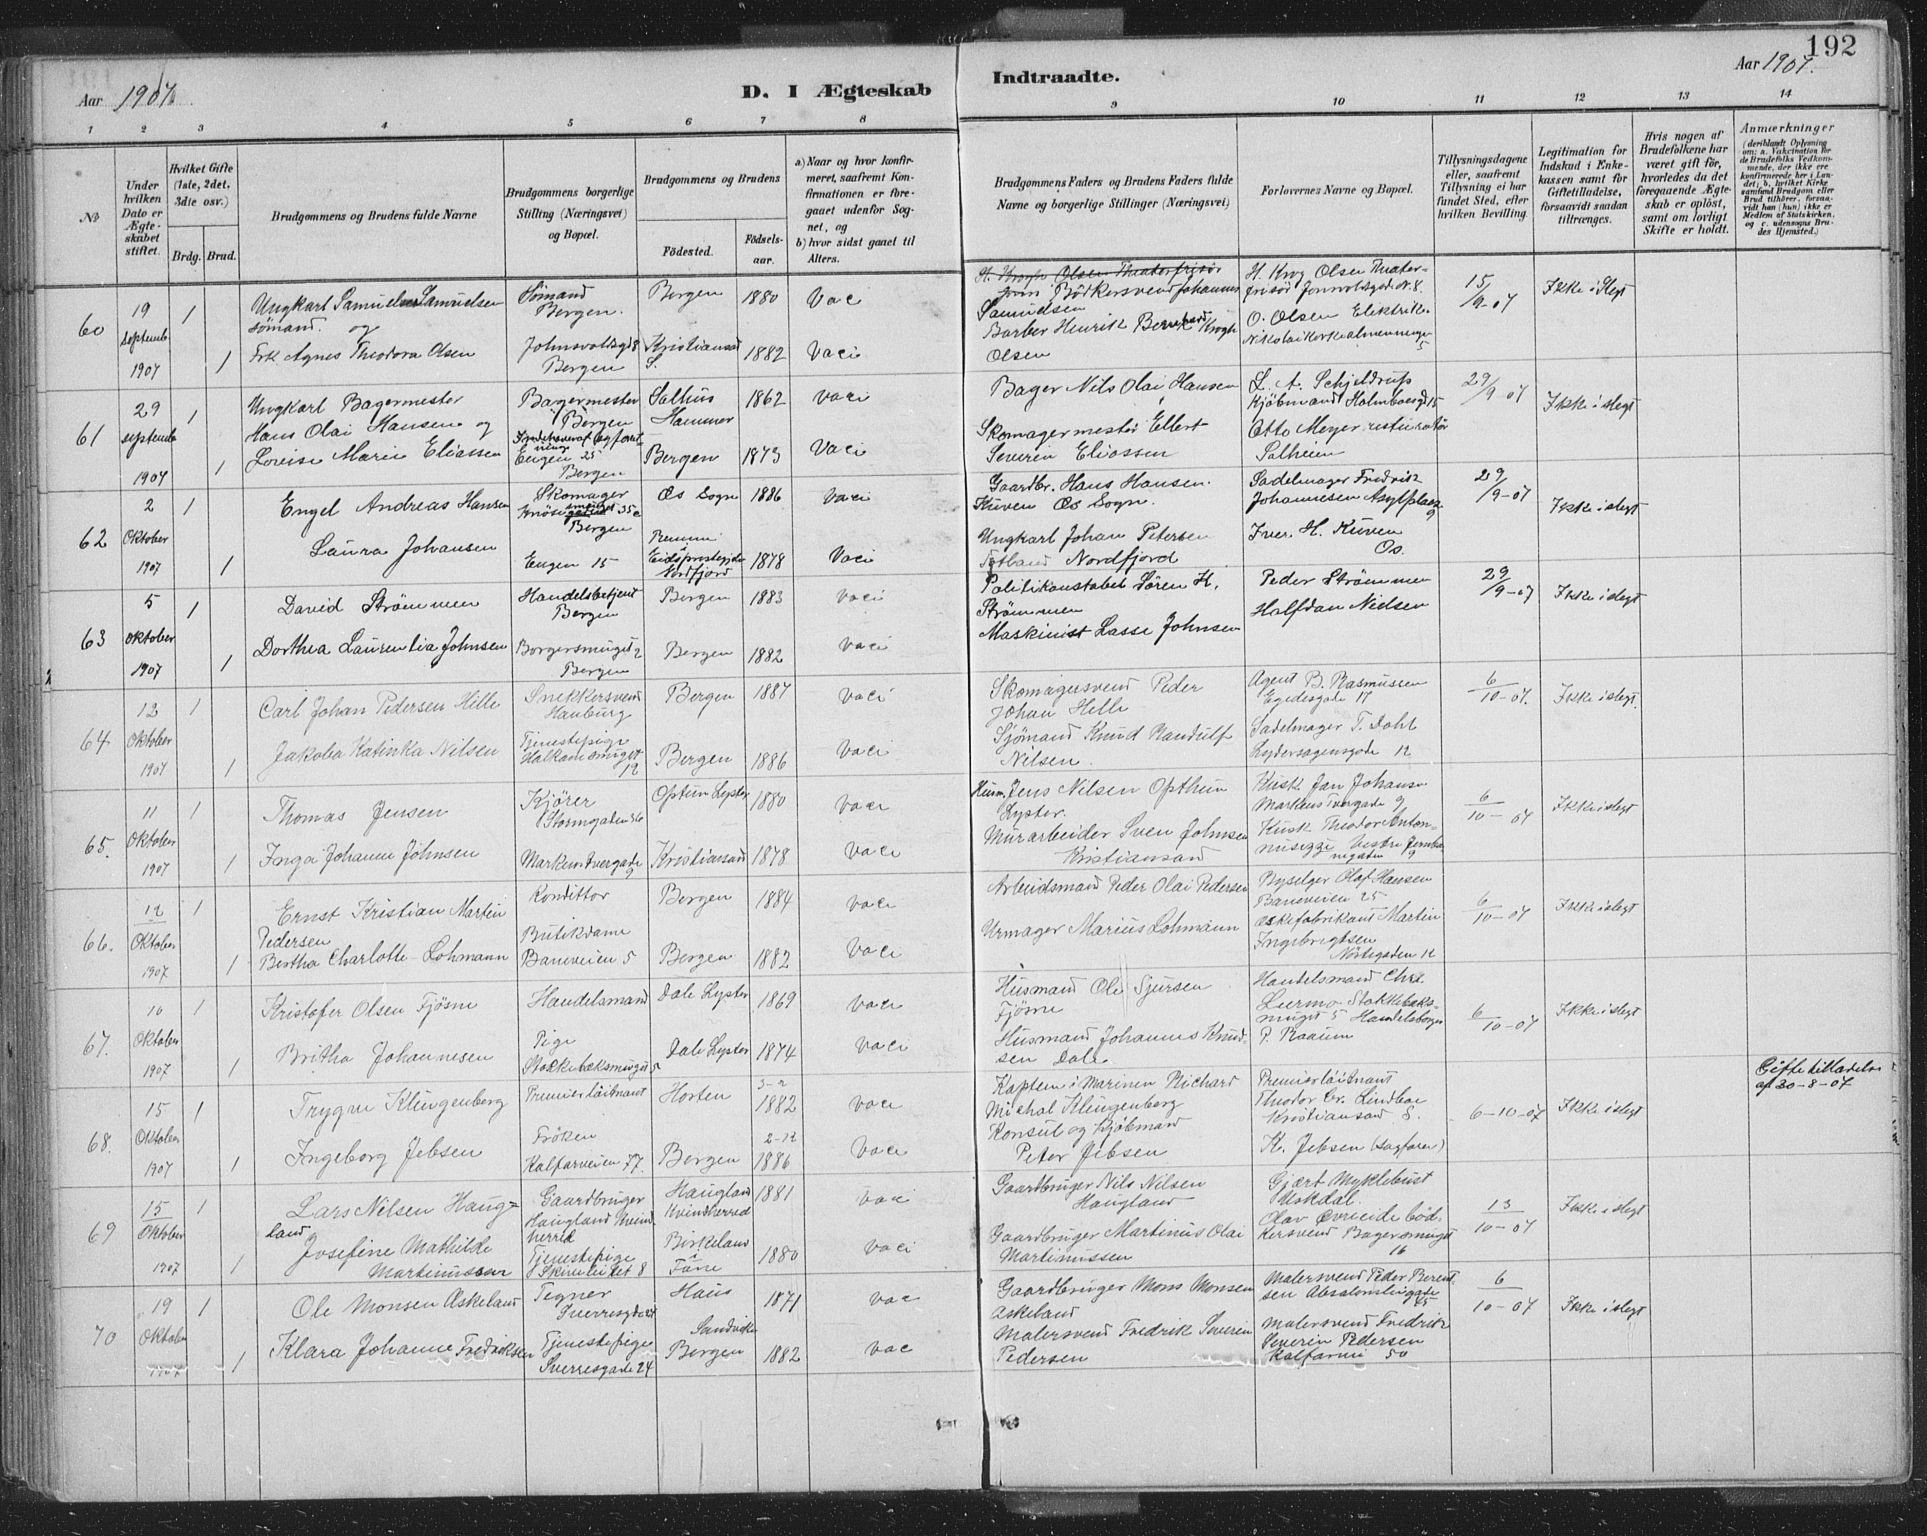 192
Aar 1907.
D. I Ægteskab
Indtraadte.
Aar 1907.
1 2 3 4 5 6 7 8 9 10 11 12 13 14
No
Under hvilken Dato er Ægteskabet stiftet.
Hvilket Gifte (1ste, 2det, 3die osv.)
Brdg. Brud.
Brudgommens og Brudens fulde Navne
Brudgommens borgerlige Stilling (Næringsvei) og Bopæl.
Brudgommens og Brudens
Fødested.
Fødselsaar.
a) Naar og hvor konfirmeret, saafremt Konfirmationen er foregaaet udenfor Sognet, og
b) hvor sidst gaaet til Alters.
Brudgommens Faders og Brudens Faders fulde Navne og borgerlige Stillinger (Næringsvei)
Forlovernes Navne og Bopæl.
Tillysningsdagene eller, saafremt Tillysning ei har fundet Sted, efter hvilken Bevilling.
Legitimation for Indskud i Enkekassen samt for Giftetilladelse, forsaavidt saadan tiltrænges.
Hvis nogen af Brudefolkene har været gift før, hvorledes da det foregaaende Ægteskab er opløst, samt om lovligt Skifte er holdt.
Anmærkninger
60
19 septemb 1907
1
Ungkarl Samuel Samuelsen
sømand. og
Sømand
Bergen.
Bergen 1880 Vac
Bödkersvend Johannes
Samuelsen
H. Krog Olsen Theater-
frisör
15/9-07
Ikke i Slegt
1
Frk Agnes Theodora Olsen
Bergen
Kristiansand S. 1882 Vaci
Barber Henrik Bernhard Krogh
Olsen
O. Olsen Elektrik.
61
29 septemb 1907
1
Ungkarl Bagermester
Hans Olai Hansen og
Bagermester
Bergen
Salhus
Hammer
1862 Vaci
Bager Nils Olai Hansen
L. A. Schjeldrup
Kjöbmand Holmboegd 15
29/9 07
Ikke i slegt
1
Lovise Marie Eliassen
Engen 25
Bergen
Bergen 1873 Vaci
Skomagermester Ellert
Severin Eliassen
Otto Meyer
Solheim
62
2 Oktober 1907
1
Engel Andreas Hansen
Skomager
35c
Bergen
Os Sogn 1886 Vaci
Gaardbr. Hans Hansen.
Kuven Os Sogn.
Sadelmager Fredrik
Johannesen Asylplads
9
29/9-07
Ikke i slegt
1
Laura Johansen
Engen 15
Nordfjord
1878 Vaci
Ungkarl Johan Petersen
Nordfjord
Iver. H. Kuven
Os.
63
5 Oktober 1907
1
David Strömmen
Handelsbetjent
Bergen
Bergen 1883 Vaci
Politikonstabel Sören H.
Strömmen
Peder Strömmen
29/9-07
Ikke i slegt
1
Dorthea Laurentia Johnsen
Borgersmuget 2
Bergen
Bergen 1882 Vaci
Maskinist Lasse Johnsen
Halfdan Nielsen
64
12 Oktober 1907
1
Carl Johan Pedersen Hille
Snekkersvend
Hamburg
Bergen 1887 Vaci
Skomagersvend Peder
Johan Helle
Agent B. Rasmussen
Egedesgade 17
6/10-07.
Ikke i slegt.
1
Jakoba Katinka Nilsen
Tjenestepige
19
Bergen 1886 Vaci
Sjömand Knud Randulf
Nilsen.
Sadelmager T. Dahl
Lydersagensgade 12
65.
11 Oktober 1907
1
Thomas Jensen
Kjörer
Stormgaden 36
Optun Lyster 1880 Vaci
Husm. Jens Nilsen Opthun
Lyster.
Kusk Jan Johans
Markens Tvergade 9
6/10-07
Ikke i slegt
1
Inga Johanne Johnsen
Markens Tvergade
9
Kristiansand 1878 Vaci
Murarbeider Sven Johnsen
Kristiansand
Kusk Theodor Anton-
66.
12 Oktober 1907
1
Ernst Kristian Martin
Pedersen
Konditor
Bergen 1884 Vaci
Arbeidsmand Peder Olai Pedersen
Byselger Olaf Hansen
Baneveien 25
6/10-07
Ikke i slegt
1
Bertha Charlotte Lohmann
Butikdame
Baneveien 5
Bergen 1882 Vaci
Urmager Marius Lohmann
Martin
Ingebrigtsen
Nöstegaden 12
67.
10 Oktober 1907
1
Kristofer Olsen Fjösne
Handelsmand
Dale Lyster 1869 Vaci
Husmand Ole Sjursen
Fjösne
Handelsmand Chr.
Lurmo Stokkebæks-
muget 5 Handelsborger
6/10-07
Ikke i slegt
1
Britha Johannesen
Pige
Stokkebæksmuget 5
Dale Lyster 1874 Vaci
Husmand Johannes Knud-
sen Dale.
P. Raaum
68.
15 Oktober 1907
1
Trygve Klingenberg
Premierlöitnant
Horten
1882 Vaci
Kaptein i Marinen Richard
Michal Klingenberg
Premierlöitnant
Theodor Chr. Lindboe
Kristiansand S.
6-10-07
Ikke i slegt
Giftetilladelse
af 30-8-07
1
Ingeborg Jebsen
Fröken
Kalfarveien 77.
Bergen
2-12
1886
Vaci
Konsul og Kjöbmand
Peter Jebsen
K. Jebsen (Sagförer)
69
15 Oktober 1907
1
Lars Nilsen Haug-
land
Gaardbruger
Haugland Kvind
herred
Haugland
Kvinsherred
1881 Vaci
Gaardbruger Nils Nilsen
Haugland
Gjært Myklebust
Uskdal.
13/10-07
Ikke i slegt
1
Josefine Mathilde
Martinussen
Tjenestepige
8
Birkeland
Fane
1880 Vaci
Gaardbruger Martinus Olai
Martinussen
Olav Övreeide böd-
kersvend Bagersmuget
16
70
19 Oktober 1907
1
Ole Monsen Askeland
Tegner
Sverresgd 24
Haus 1871 Vac
Gaardbruger Mons Monsen
Askeland
Malersvend Peder Berent
sen Absalonsensgade
25
6/10-07
Ikke i slegt
1
Klara Johanne Fredriksen
Tjenestepige
Sverresgade 24
Sandviken
Bergen 1882 Vac
Malersvend Fredrik Severin
Pedersen
Malersvend Fredrik
Severin Pedersen
Kalfarvei 50